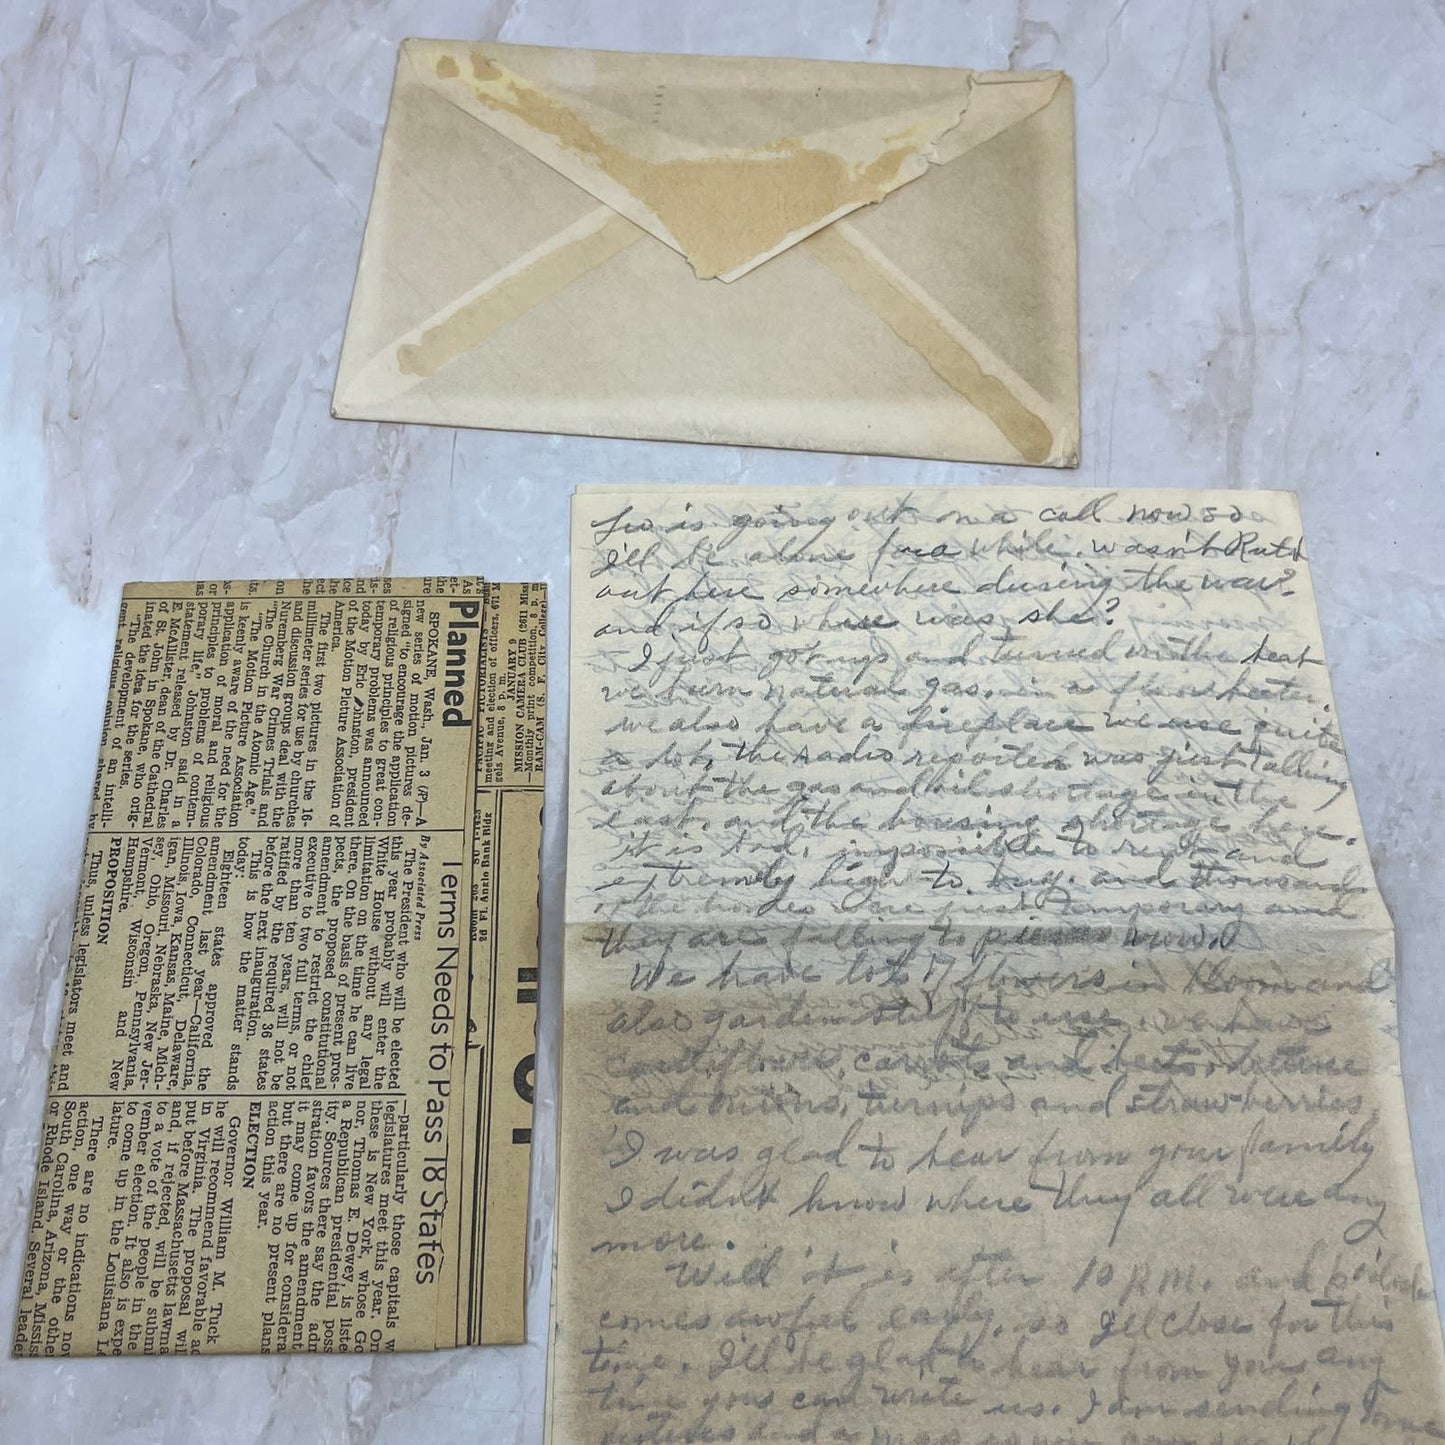 is going out on a call now so
I'll be alone for a while. wasn't Ruth
out here somewhere during the war?
and if so where was she?
I just got up and turned on the heat
we burn natural gas. in a floor heater.
we also have a fireplace we use quite
a lot, the radio reporter was just talking
about the gas and oil shortage in the
east. and the housing shortage here.
it is bad, impossible to rent and
extremely high to buy. and thousands
of the homes are just temporary and
they are falling to pieces now.
We have lots of flowers in bloom and
also garden stuff to use. we have
cauliflower, carrots and beets, lettuce
and onions, turnips and strawberries.
I was glad to hear from your family
I didn't know where they all were any
more.
Well it is after 10 P.M. and
comes awful early, so I'll close for this
time. I'll be glad to hear from you any
time you can write us. I am sending some
pictures and a map
Planned
SPOKANE, Wash., Jan. 3 (P)—A
new series of motion pictures de-
signed "to encourage the application
of religious principles to great con-
temporary problems was announced
today by Eric Johnston, president
of the Motion Picture Association of
America.
The first two pictures in the 16-
millimeter series for use by churches
and discussion groups deal with the
Nuremberg War Crimes Trials and
"The Church in the Atomic Age."
"The Motion Picture Association
is keenly aware of the need for the
application of moral and religious
principles to problems of contem-
porary life," Johnston said in a
statement released by Dr. Charles
E. McAllister, dean of the Cathedral
of St. John in Spokane, who orig-
inated the idea for the series.
"The development of an intelli-
gent religious opinion shared by
Terms Needs to Pass 18 States
By Associated Press
The President who will be elected
this year probably will enter the
White House without any legal
limitation on the time he can live
there. On the basis of present pros-
pects, the proposed constitutional
amendment to restrict the chief
executive to two full terms, or not
more than ten years, will not be
ratified by the required 36 states
before the next inauguration.
This is how the matter stands
today:
Eighteen states approved the
amendment last year—California,
Colorado, Connecticut, Delaware,
Illinois, Iowa, Kansas, Maine, Mich-
igan, Missouri, Nebraska, New Jer-
sey, Ohio, Oregon, Pennsylvania,
Vermont, Wisconsin and New
Hampshire.
PROPOSITION
Thus, unless legislators meet and
—particularly those capitals w
legislatures meet this year. On
these is New York, whose Go
nor, Thomas E. Dewey, is liste
a Republican presidential poss
ity. Sources there say the adm
stration favors the amendment
it may come up for considera
but there are no present plans
action this year.
ELECTION
Governor William M. Tuck
he will recommend favorable ac
in Virginia. The proposal wil
put before Massachusetts lawma
and, if rejected, will be submi
to a vote of the people in the
vember election. It also is expe
to come up in the Louisiana Le
lature.
There are no indications now
action, one way or the other
South Carolina, Arizona, Missis
or Rhode Island. Several leader